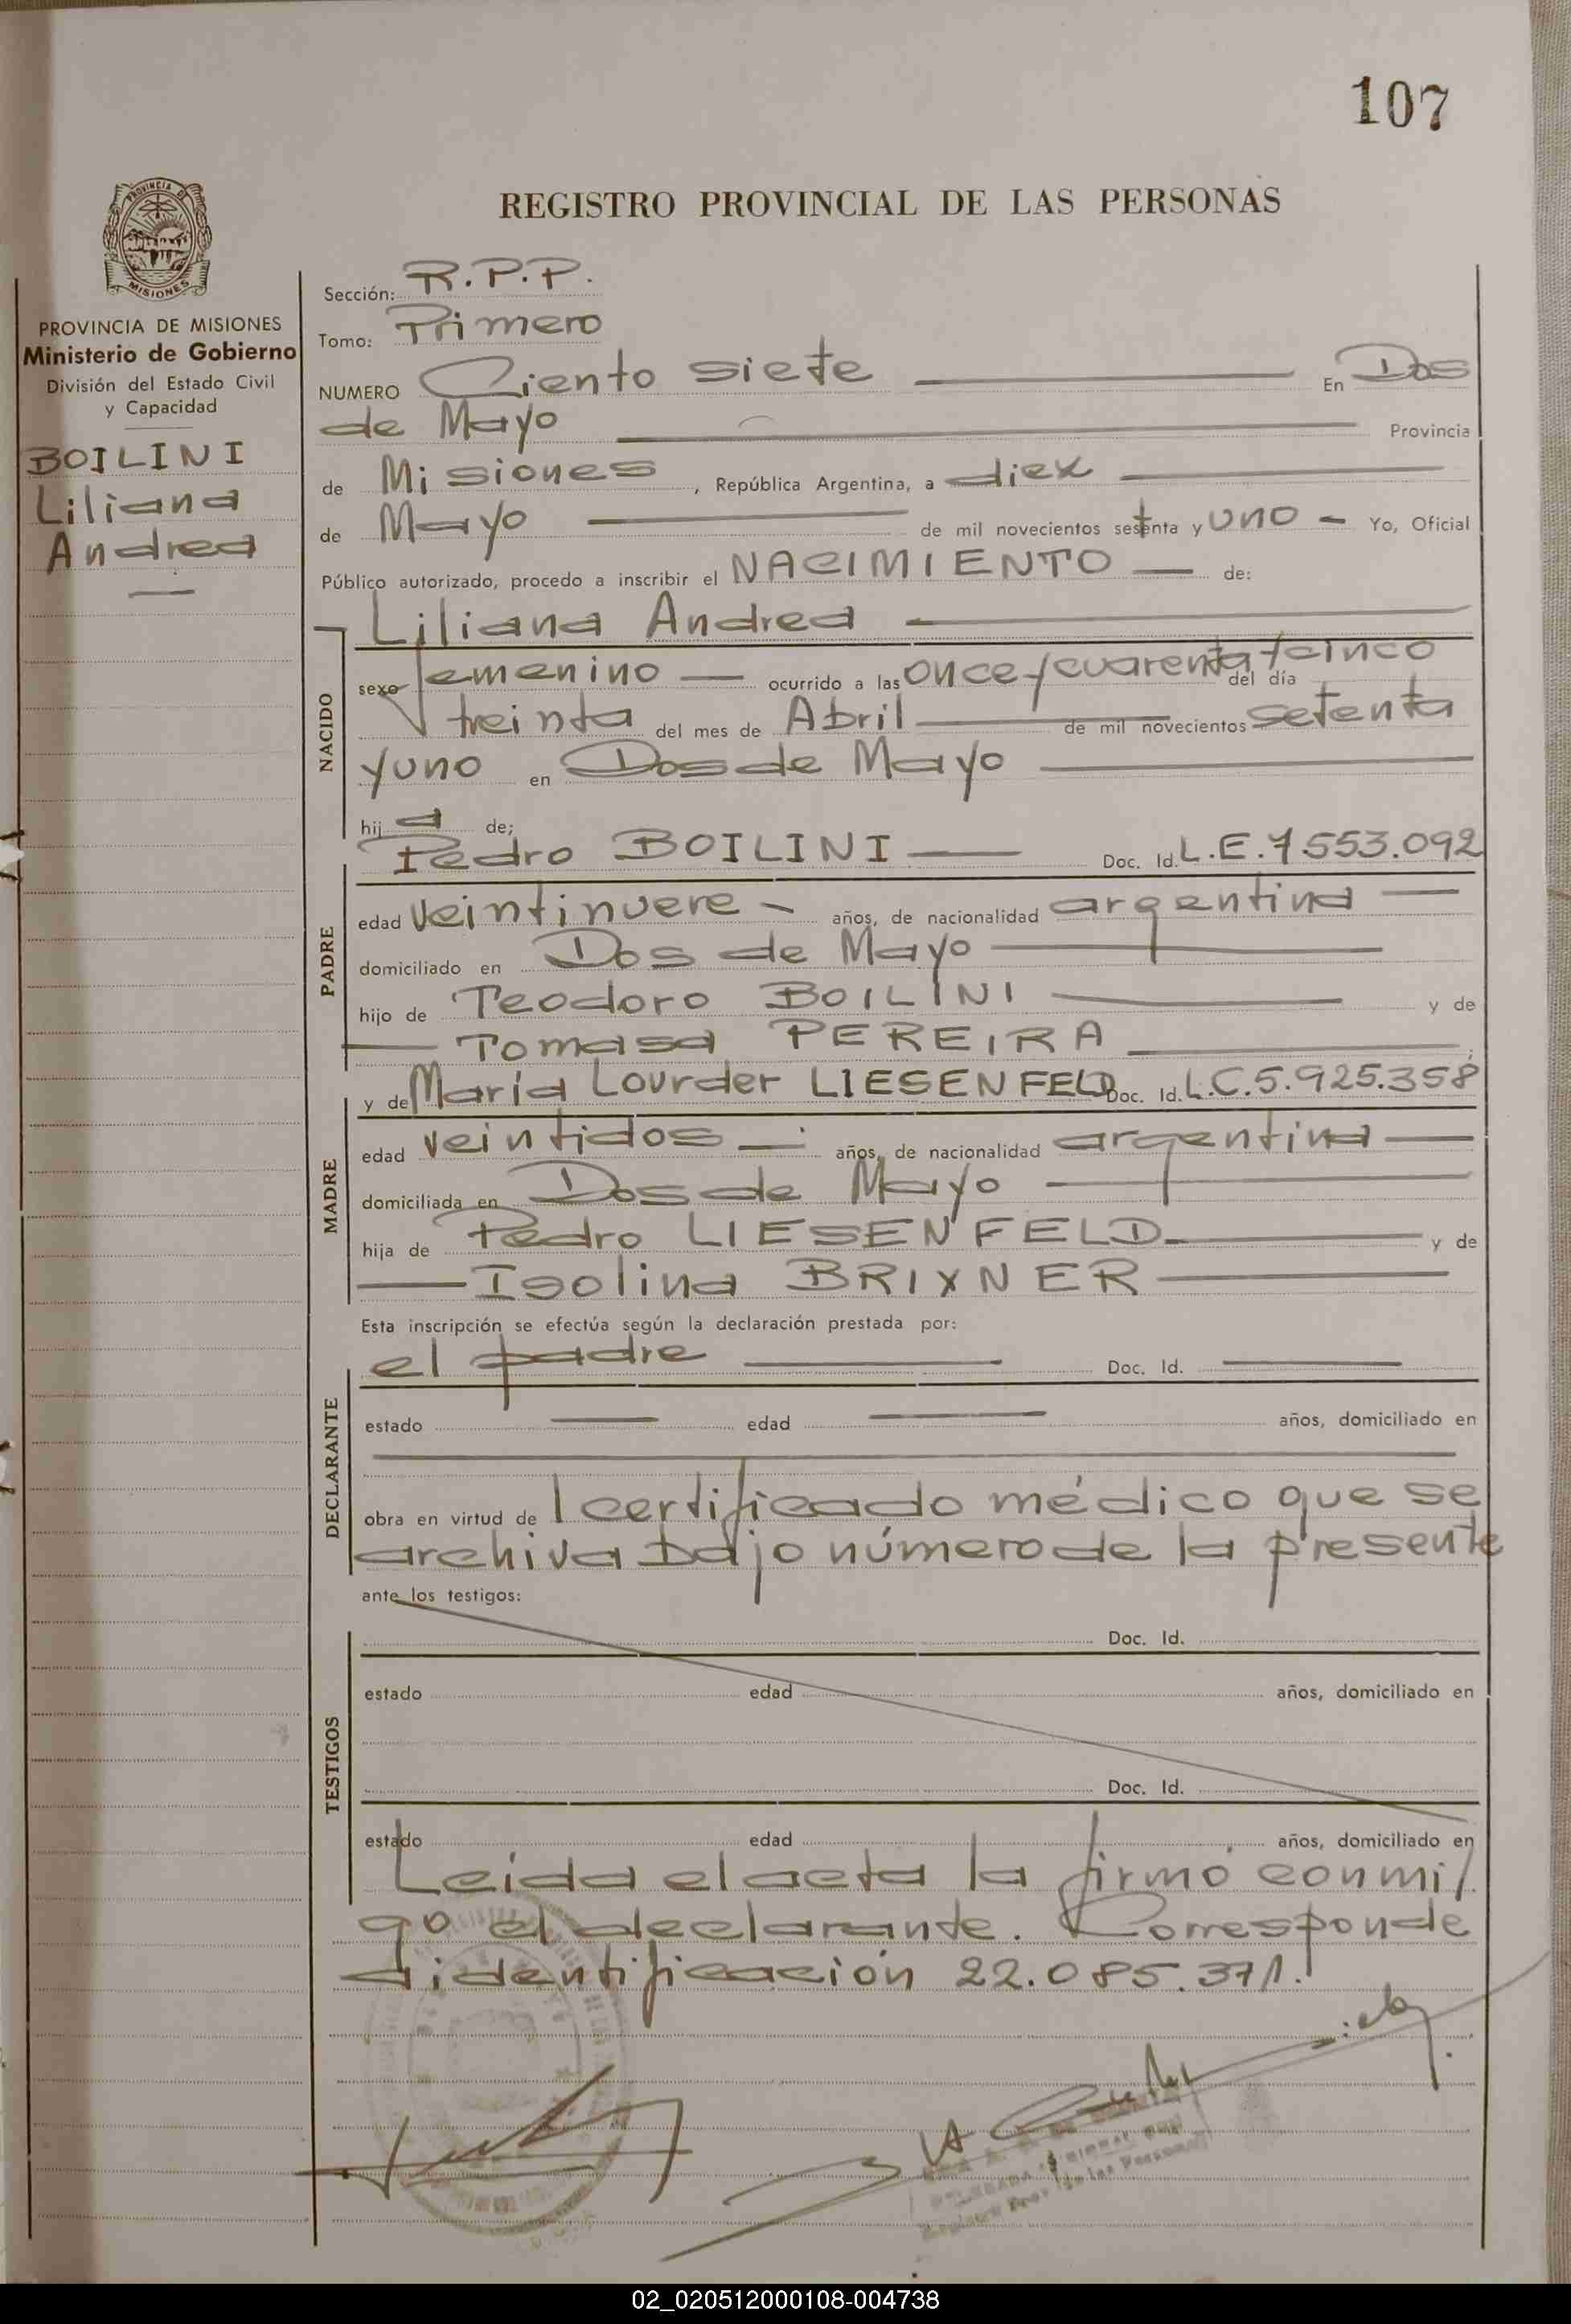 107
REGISTRO PROVINCIAL DE LAS PERSONAS
PROVINCIA DE MISIONES
MISIONES
PROVINCIA DE MISIONES
Ministerio de Gobierno
División del Estado Civil
y Capacidad
BOILINI
Liliana
Andrea
Sección: R.P.P.
Tomo: Primero
NUMERO Ciento siete En Dos
de Mayo Provincia
de Misiones, República Argentina, a diez
de Mayo de mil novecientos setenta y uno - Yo, Oficial
Público autorizado, procedo a inscribir el NACIMIENTO de:
Liliana Andrea
NACIDO
sexo femenino ocurrido a las once y cuarenta y cinco del día
treinta del mes de Abril de mil novecientos setenta
y uno en Dos de Mayo
hija de;
Pedro BOILINI Doc. Id. L.E. 7.553.092
PADRE
edad veintinueve - años, de nacionalidad argentina
domiciliado en Dos de Mayo
hijo de Teodoro BOILINI y de
Tomasa PEREIRA
y de María Lourder LIESENFELD Doc. Id. L.C. 5.925.358
MADRE
edad veintidos años, de nacionalidad argentina
domiciliada en Dos de Mayo
hija de Pedro LIESENFELD y de
Isolina BRIXNER
Esta inscripción se efectúa según la declaración prestada por:
el padre Doc. Id.
DECLARANTE
estado edad años, domiciliado en
obra en virtud de l certificado médico que se
archiva bajo número de la presente
ante los testigos:
TESTIGOS
Doc. Id.
estado edad años, domiciliado en
Doc. Id.
estado edad años, domiciliado en
Leida el acta la firmó conmi/
go el declarante. Corresponde
a identificación 22.085.371.
02_020512000108-004738